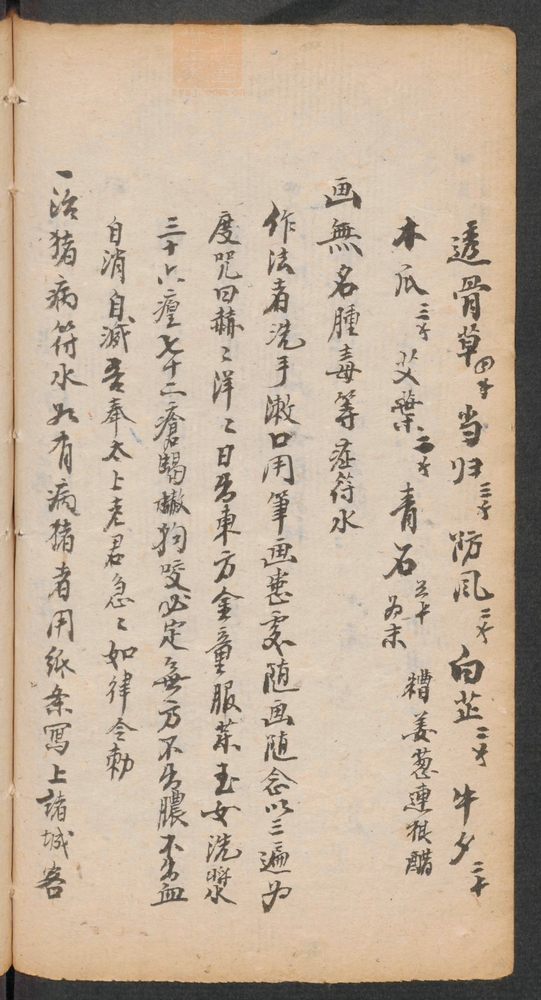 透骨草四才 当归三才 防风二才 白芷二才 牛夕三才
木瓜三才 艾葉二才 青石五十 为末 糟姜葱連根醋
画無名腫毒等症符水
作法者洗手漱口用筆画患處随画随念以三遍为
度咒曰赫〻洋〻日出東方金童服菜玉女洗漿
三十六癀七十二瘡蝎蠍狗咬必定無方不出膿不出血
自消自滅吾奉太上老君急〻如律令勅
一治猪病符水如有病猪者用紙条寫上諸城客